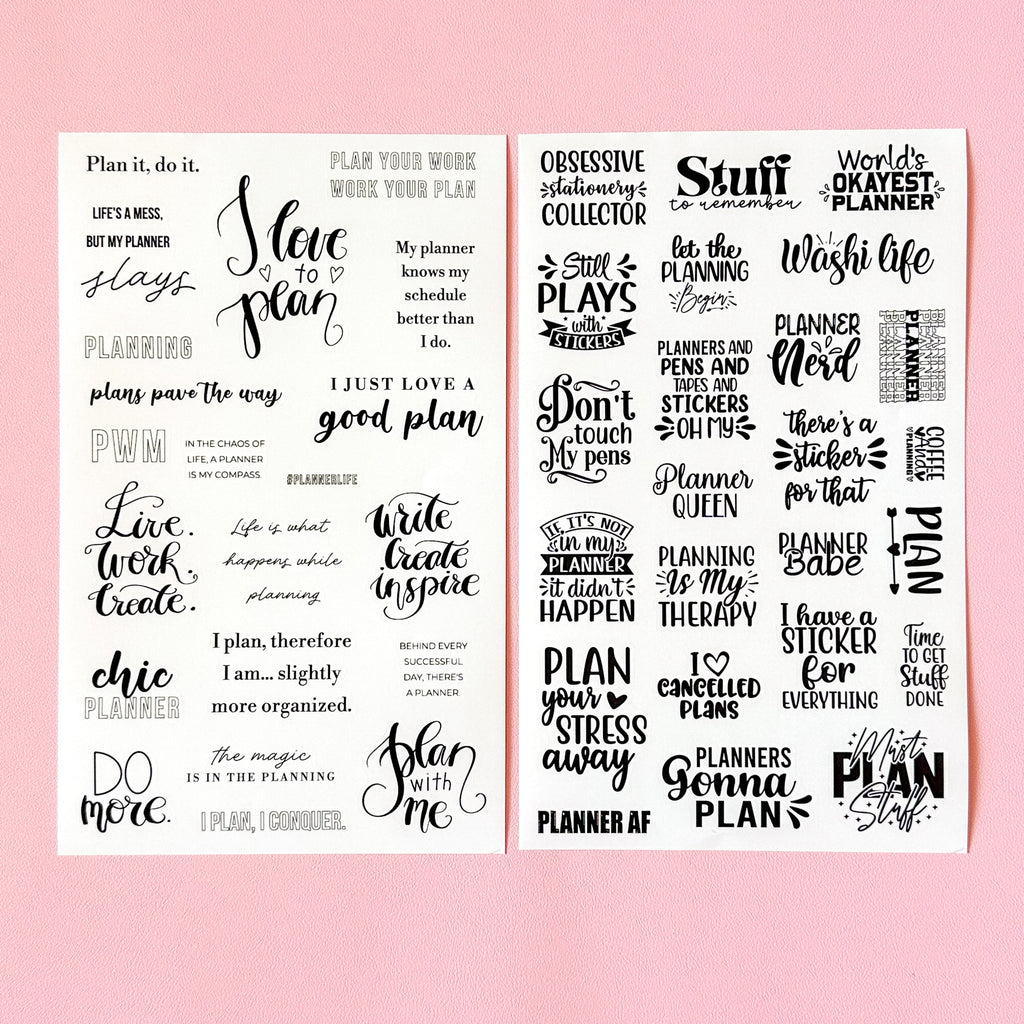 Plan it, do it.
PLAN YOUR WORK
WORK YOUR PLAN
LIFE'S A MESS,
BUT MY PLANNER
slays
I love
to
plan
My planner
knows my
schedule
better than
I do.
PLANNING
plans pave the way
I JUST LOVE A
good plan
PWM
IN THE CHAOS OF
LIFE, A PLANNER
IS MY COMPASS.
#PLANNERLIFE
Live.
Work.
Create.
Life is what
happens while
planning
Write
Create
inspire
chic
PLANNER
I plan, therefore
I am... slightly
more organized.
BEHIND EVERY
SUCCESSFUL
DAY, THERE'S
A PLANNER.
DO
more.
the magic
IS IN THE PLANNING
I PLAN, I CONQUER.
plan
with
me
OBSESSIVE
stationery
COLLECTOR
Stuff
to remember
World's
OKAYEST
PLANNER
Still
PLAYS
with
STICKERS
let the
PLANNING
Begin
Washi life
PLANNERS AND
PENS AND
TAPES AND
STICKERS
OH MY
PLANNER
Nerd
PLANNER
PLANNER
PLANNER
PLANNER
PLANNER
Don't
touch
My pens
Planner
QUEEN
there's a
sticker
for that
COFFEE
And
PLANNING
IF IT'S NOT
in my
PLANNER
it didn't
HAPPEN
PLANNING
Is My
THERAPY
PLANNER
Babe
PLAN
PLAN
your
STRESS
away
I
CANCELLED
PLANS
I have a
STICKER
for
EVERYTHING
Time
TO GET
Stuff
DONE
PLANNER AF
PLANNERS
Gonna
PLAN
Must
PLAN
Stuff